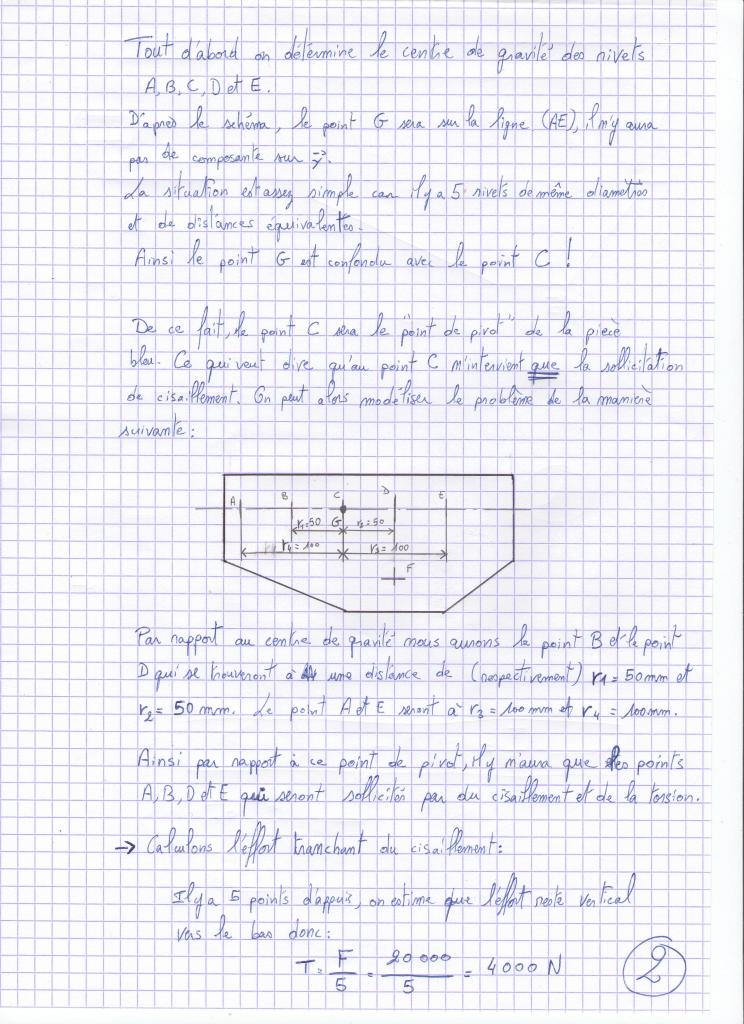 Tout d'abord on détermine le centre de gravité des rivets
A, B, C, D et E.
D'après le schéma, le point G sera sur la ligne (AE), il n'y aura
pas de composante sur y.
La situation est assez simple car il y a 5 rivets de même diamètres
et de distances équivalentes.
Ainsi le point G est confondu avec le point C !
De ce fait, le point C sera le "point de pivot" de la pièce
bleu. Ce qui veut dire qu'au point C n'intervient que la sollicitation
de cisaillement. On peut alors modéliser le problème de la manière
suivante :
A B C D E
r1=50 G r2=50
r4=100 r3=100
F
Par rapport au centre de gravité nous aurons le point B et le point
D qui se trouveront à une distance de (respectivement) r1=50mm et
r2=50 mm. Le point A et E seront à r3=100mm et r4=100mm.
Ainsi par rapport à ce point de pivot, il y n'aura que les points
A, B, D et E qui seront sollicités par du cisaillement et de la torsion.
→ Calculons l'effort tranchant du cisaillement :
Il y a 5 points d'appuis, on estime que l'effort reste vertical
vers le bas donc :
T = F/5 = 20 000/5 = 4000 N
2